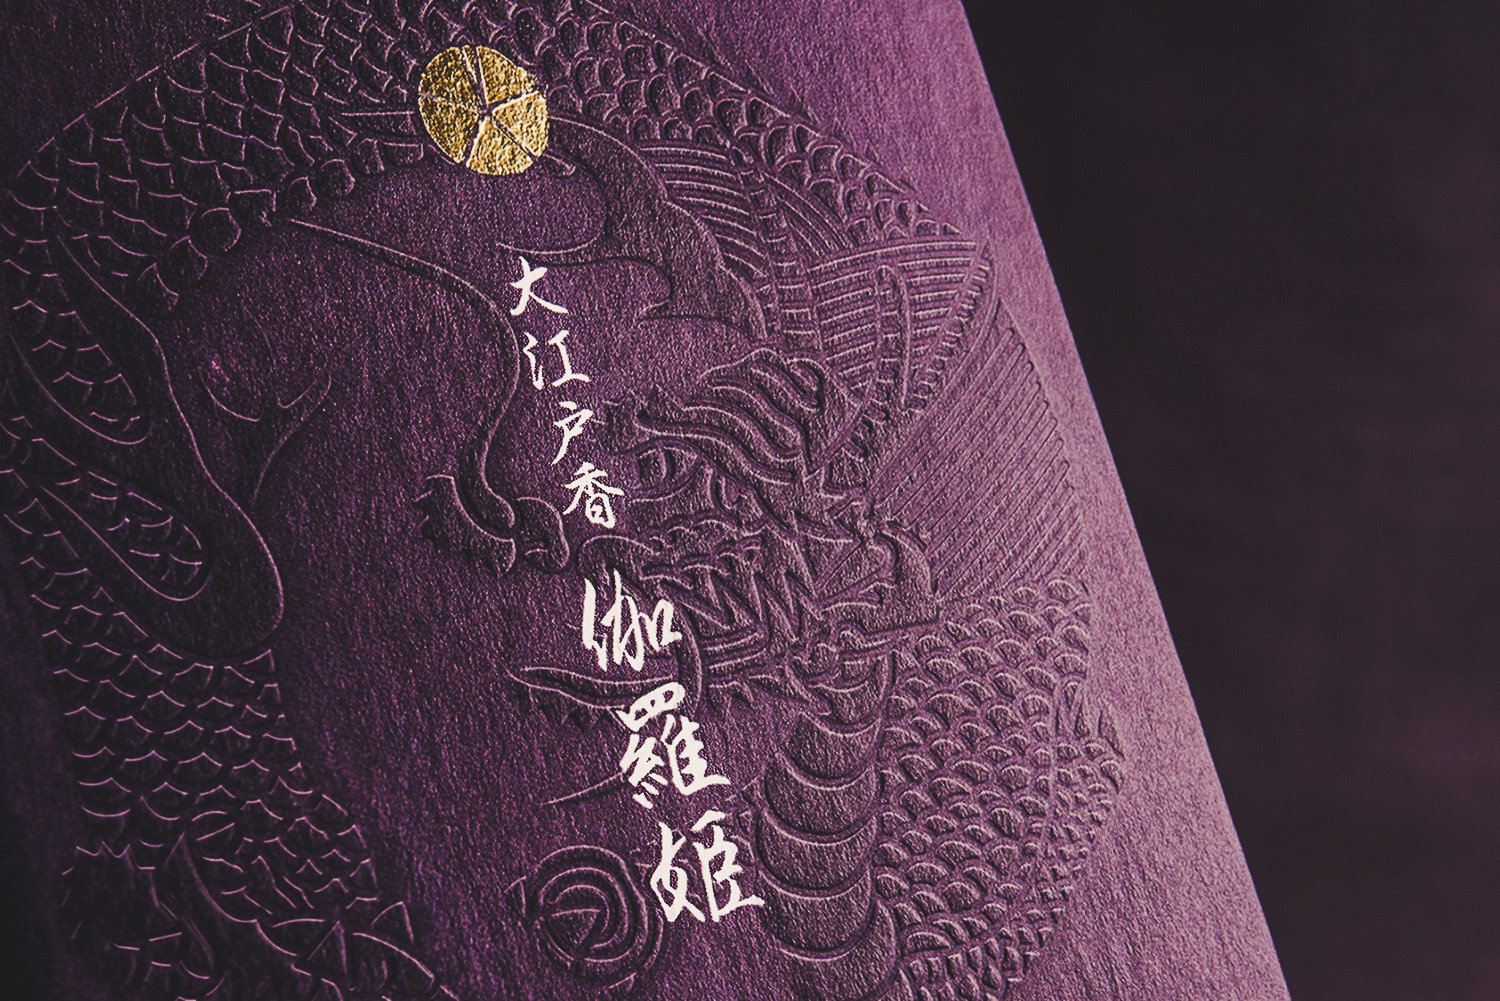 大江戸香
伽羅姫